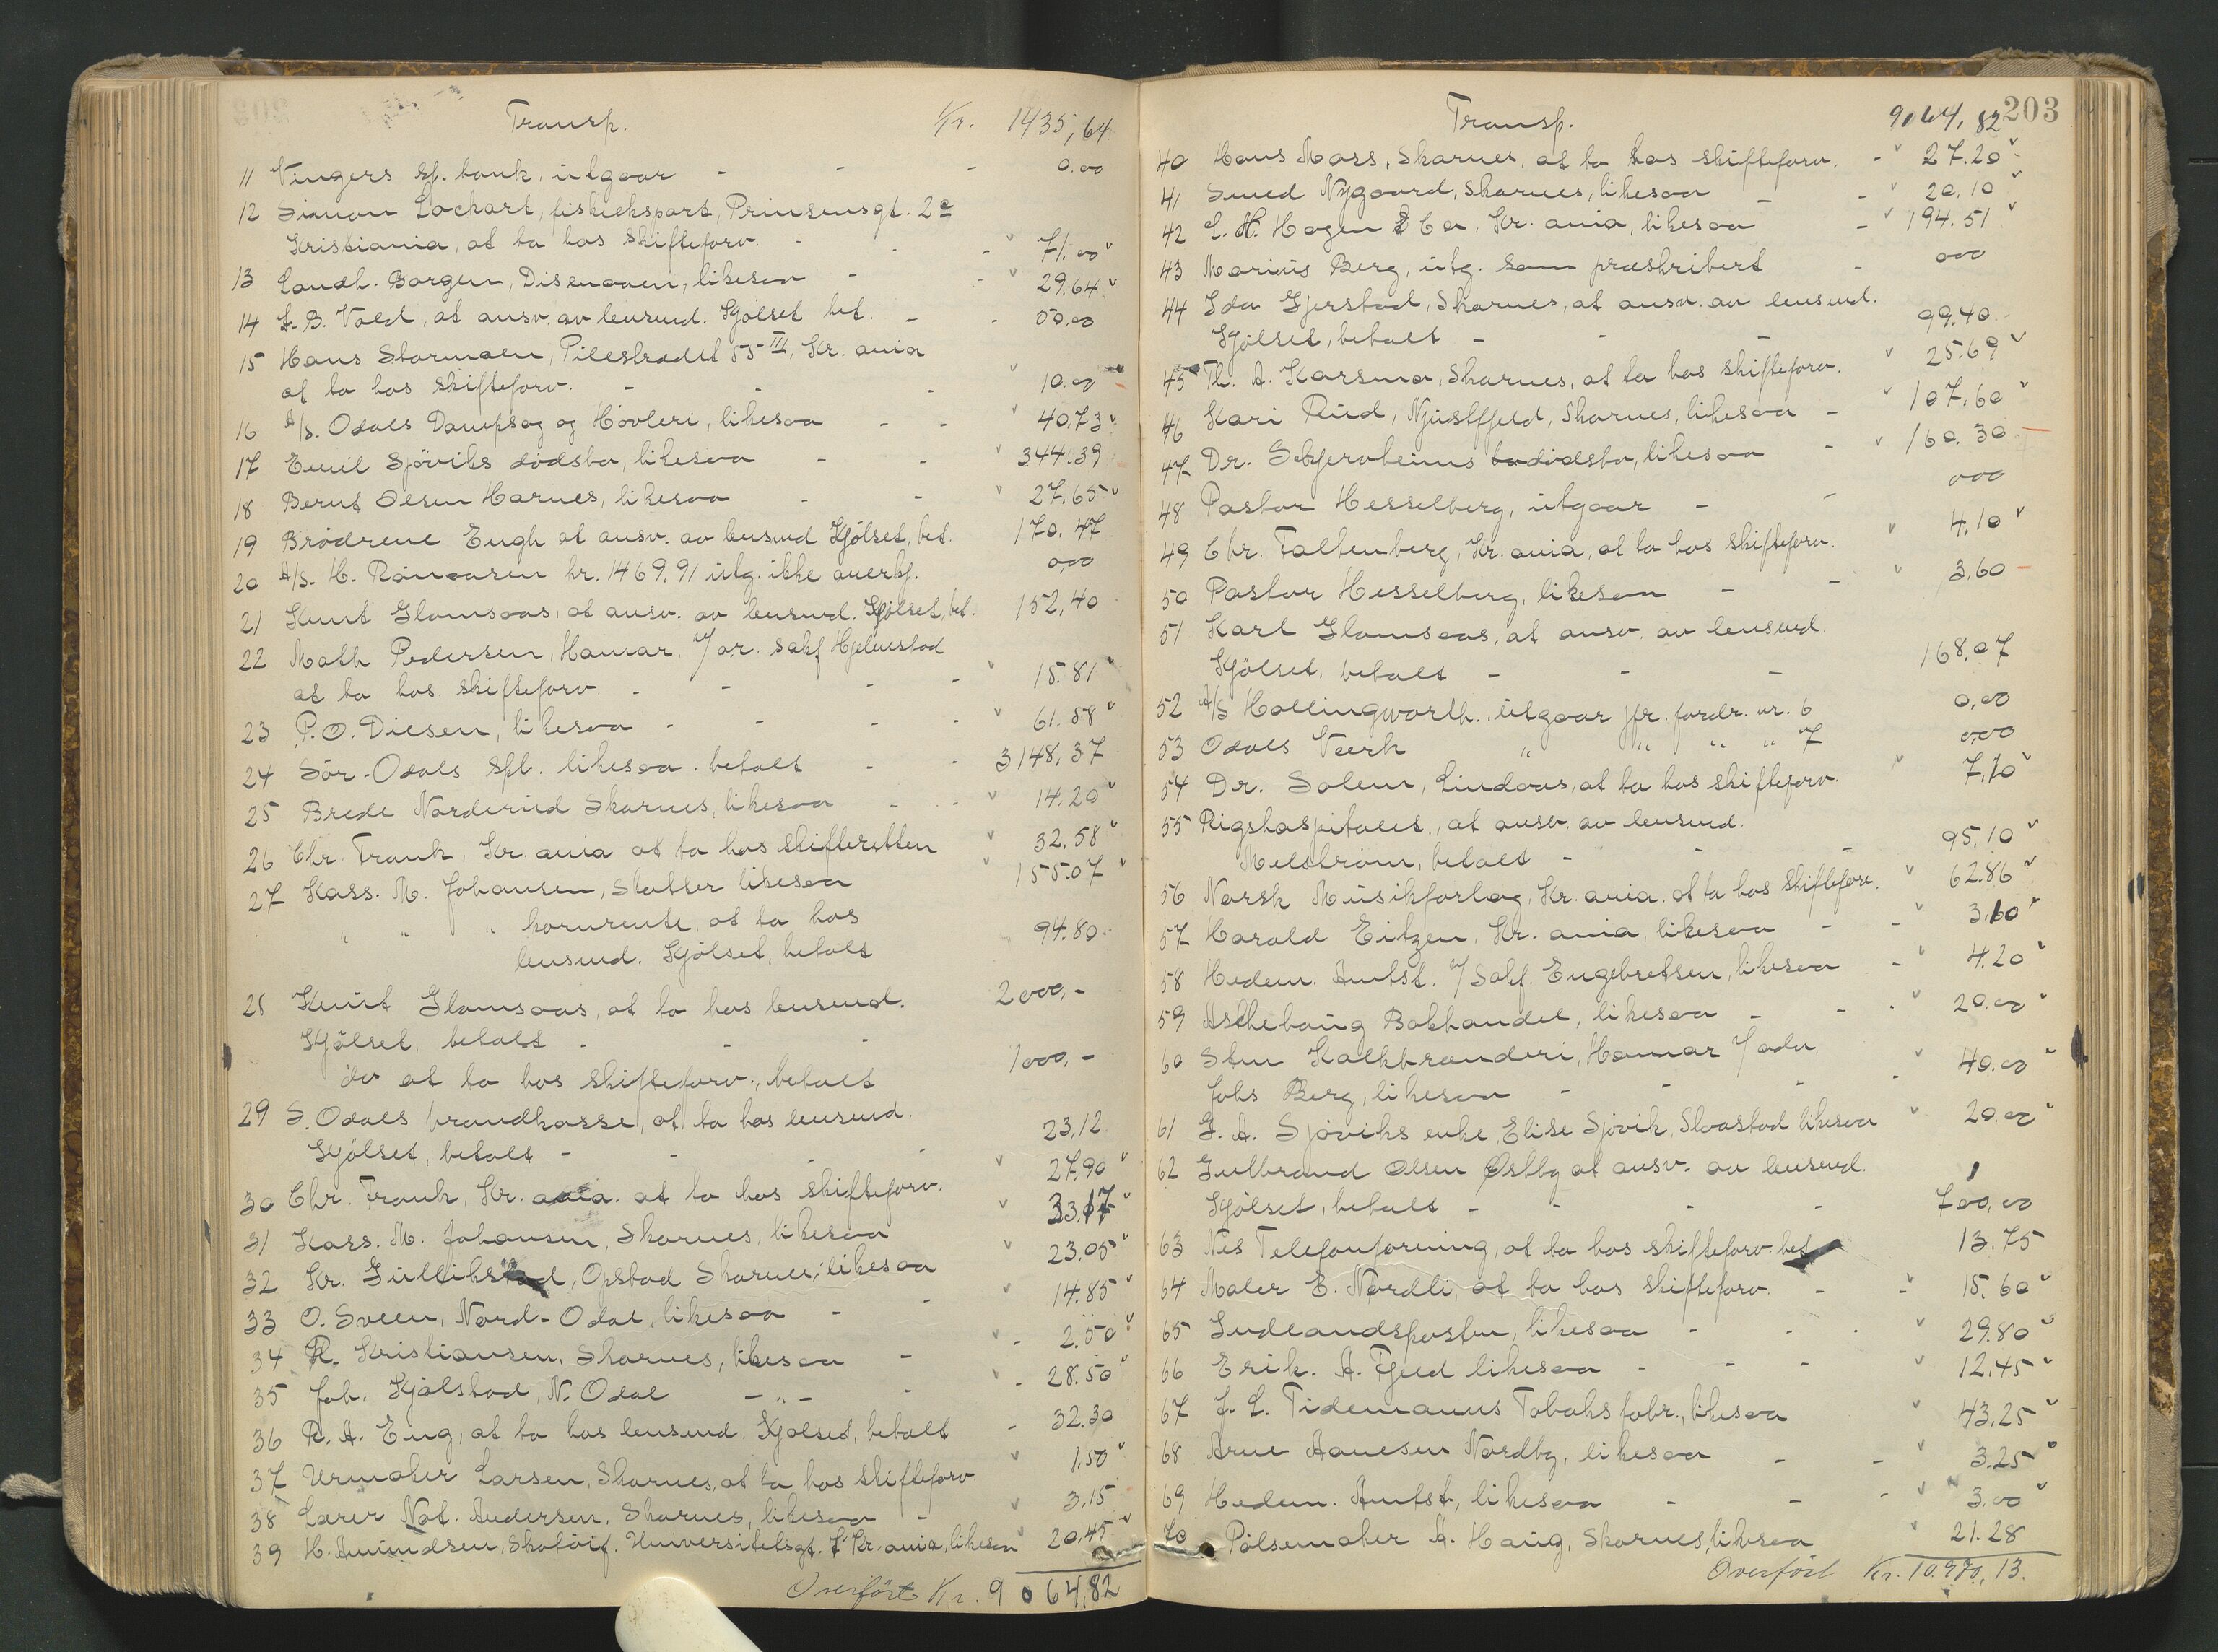 Transp. Kr. 1435,64
11 Vingers sp. bank, utgaar - - - 0.00
12 Simon Lochart, fiskeeksport, Prinsensgt. 2c
Kristiania, at ta hos skifteforv. - - - 71.00
13 Landh. Borgen, Disenaaen, likesaa - - 29.64
14 L. B. Vold, at ansv. av lensmd. Kjölset bet. - - 50.00
15 Hans Stormoen, Pilestrædet 55 III, Kr.ania
at ta hos skifteforv. - - - 10.00
16 A/s. Odals Dampsag og Hövleri, likesaa - - 40.73
17 Emil Sjöviks dödsbo, likesaa - - 344.39
18 Bernt Olsen Harnes, likesaa - - 27.65
19 Brödrene Engh at ansv. av lensmd Kjölset, bet. 170.47
20 A/s. H. kr. 1469.91 utg. ikke anerkj. 0,00
21 Knut Glomsaas, at ansv. av lensmd. Kjölset, bet. 152,40
22 Math Pedersen, Hamar. v/ o.r. sakf Hjelmstad
at ta hos skifteforv. - - - - 15.81
23 P. O. Diesen, likesaa - - - - 61.58
24 Sör-Odals spb. likesaa. betalt - - 3148,37
25 Brede Norderud Skarnes, likesaa - - 14.20
26 Chr. Frank, Kr.ania at ta hos skifteretten 32,58
27 Kass. M. Johansen, Slaatter likesaa 155.07
" " " kornrente, at ta hos
lensmd. Kjölset, betalt 94.80
28 Knut Glomsaas, at ta hos lensmd. 2000,-
Kjölset, betalt - - -
do at ta hos skifteforv., betalt 1000,-
29 S. Odals brandkasse, at ta hos lensmd.
Kjölset, betalt - - - - 23,12
30 Chr. Frank, Kr.ania. at ta hos skifteforv. 27.90
31 Kass. M. Johansen, Skarnes, likesaa 33,17
32 Kr. Gulliksrud, Opstad Skarnes, likesaa 23.05
33 O. Sveen, Nord-Odal, likesaa - - 14.85
34 R. Kristiansen, Skarnes, likesaa - - 2.50
35 Joh. Kjölstad, N. Odal - " - - - 28.50
36 R. A. Eng, at ta hos lensmd. Kjölset, betalt - 32.30
37 Urmaker Larsen, Skarnes, at ta hos skifteforv. 1,50
38 Lærer Nat. Andersen, Skarnes, likesaa - 3.15
39 H. Amundsen, Skotöif. Universitetsgt. Kr.ania, likesaa 20,45
Overfört Kr. 9064,82
203
Transp. 9064,82
40 Hans Moss, Skarnes, at ta hos skifteforv. - 27.20
41 Smed Nygaard, Skarnes, likesaa - - 20.10
42 L. H. Hagen & Co, Kr.ania, likesaa - 194.51
43 Marius Berg, utg. som præskribert - 000
44 Ida Gjerstad, Skarnes, at ansv. av lensmd.
Kjölset, betalt - - - 99.40
45 Th. A. Korsmo, Skarnes, at ta hos skifteforv. 25.69
46 Kari Rud, Njustfjeld, Skarnes, likesaa - 107,60
47 Dr. Schjervheims dödsbo, likesaa - 160.30
48 Pastor Hesselberg, utgaar - - 000
49 Chr. Faltenberg, Kr.ania, at ta hos skifteforv. 4,10
50 Pastor Hesselberg, likesaa - - 3,60
51 Karl Glomsaas, at ansv. av lensmd.
Kjölset, betalt - - - 168,07
52 A/s Hollingworth, utgaar jfr. fordr. nr. 6 0,00
53 Odals Verk " " " " 7 0,00
54 Dr. Solem, Lindaas, at ta hos skifteforv. 7,10
55 Rigshospitalet, at ansv. av lensmd.
Melström, betalt - - - 95,10
56 Norsk Musikforlag, Kr.ania. at ta hos skifteforv. 62.86
57 Harald Eitzen, Kr.ania, likesaa - - 3,60
58 Hedem. Amtst. v/ Sakf. Engebretsen, likesaa - 4.20
59 Aschehoug Bokhandel, likesaa - - - 20.00
60 Sten Kalkbrænderi, Hamar v/ adv.
Johs Berg, likesaa - - - - 40.00
61 G. A. Sjöviks enke, Elise Sjövik, Slaastad likesaa 20.00
62 Gulbrand Olsen Østby at ansv. av lensmd.
Kjölset, betalt - - - - 700,00
63 Nes Telefonforening, at ta hos skifteforv. bet 13.75
64 Maler E. Nordli, at ta hos skifteforv. - - 15.60
65 Indlandsposten, likesaa - - - 29.80
66 Erik. A. Fjeld likesaa - - - 12.45
67 J. L. Tidemanns Tobaksfabr., likesaa 43.25
68 Arne Aanesen Nordby, likesaa - - 3.25
69 Hedem. Amtst., likesaa - - - 3.00
70 Pölsemaker A. Haug, Skarnes, likesaa 21.28
Overfört Kr. 10.970,13.